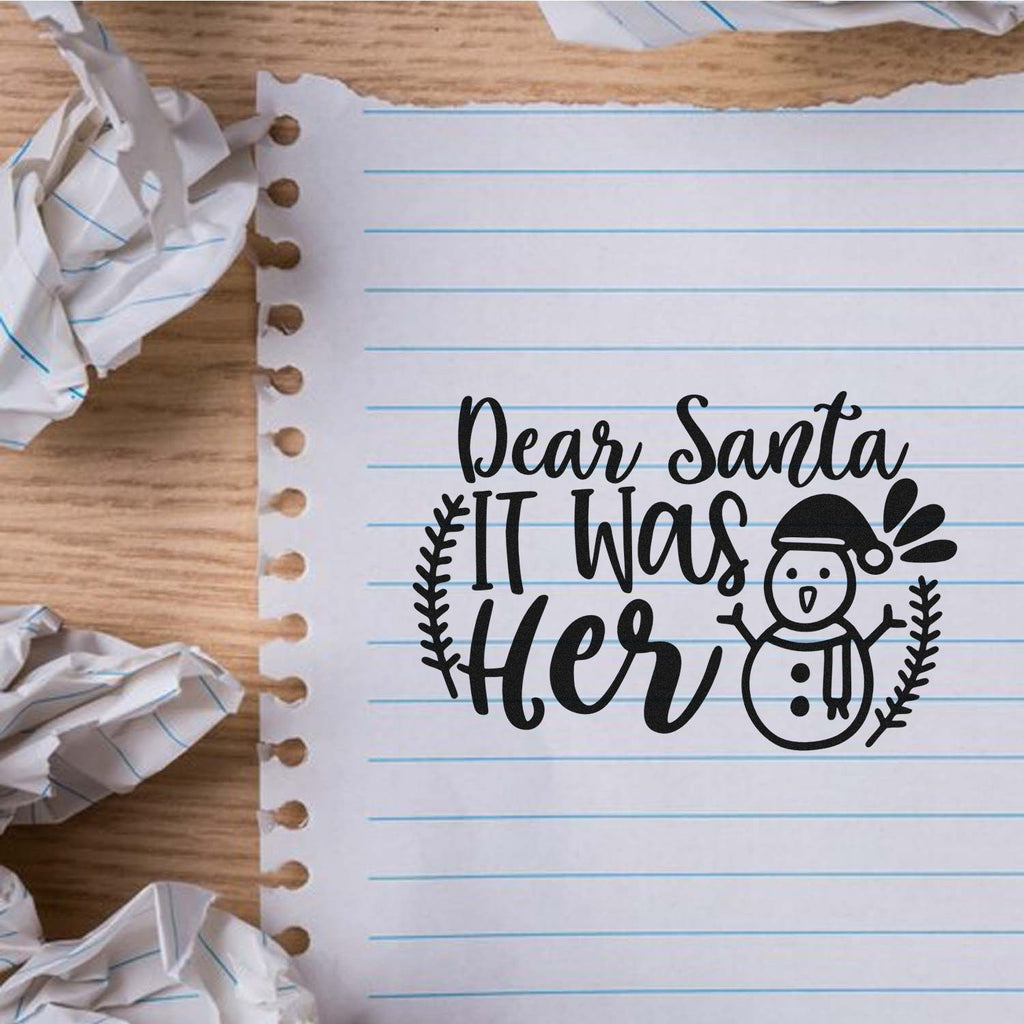 Dear Santa
IT Was
Her